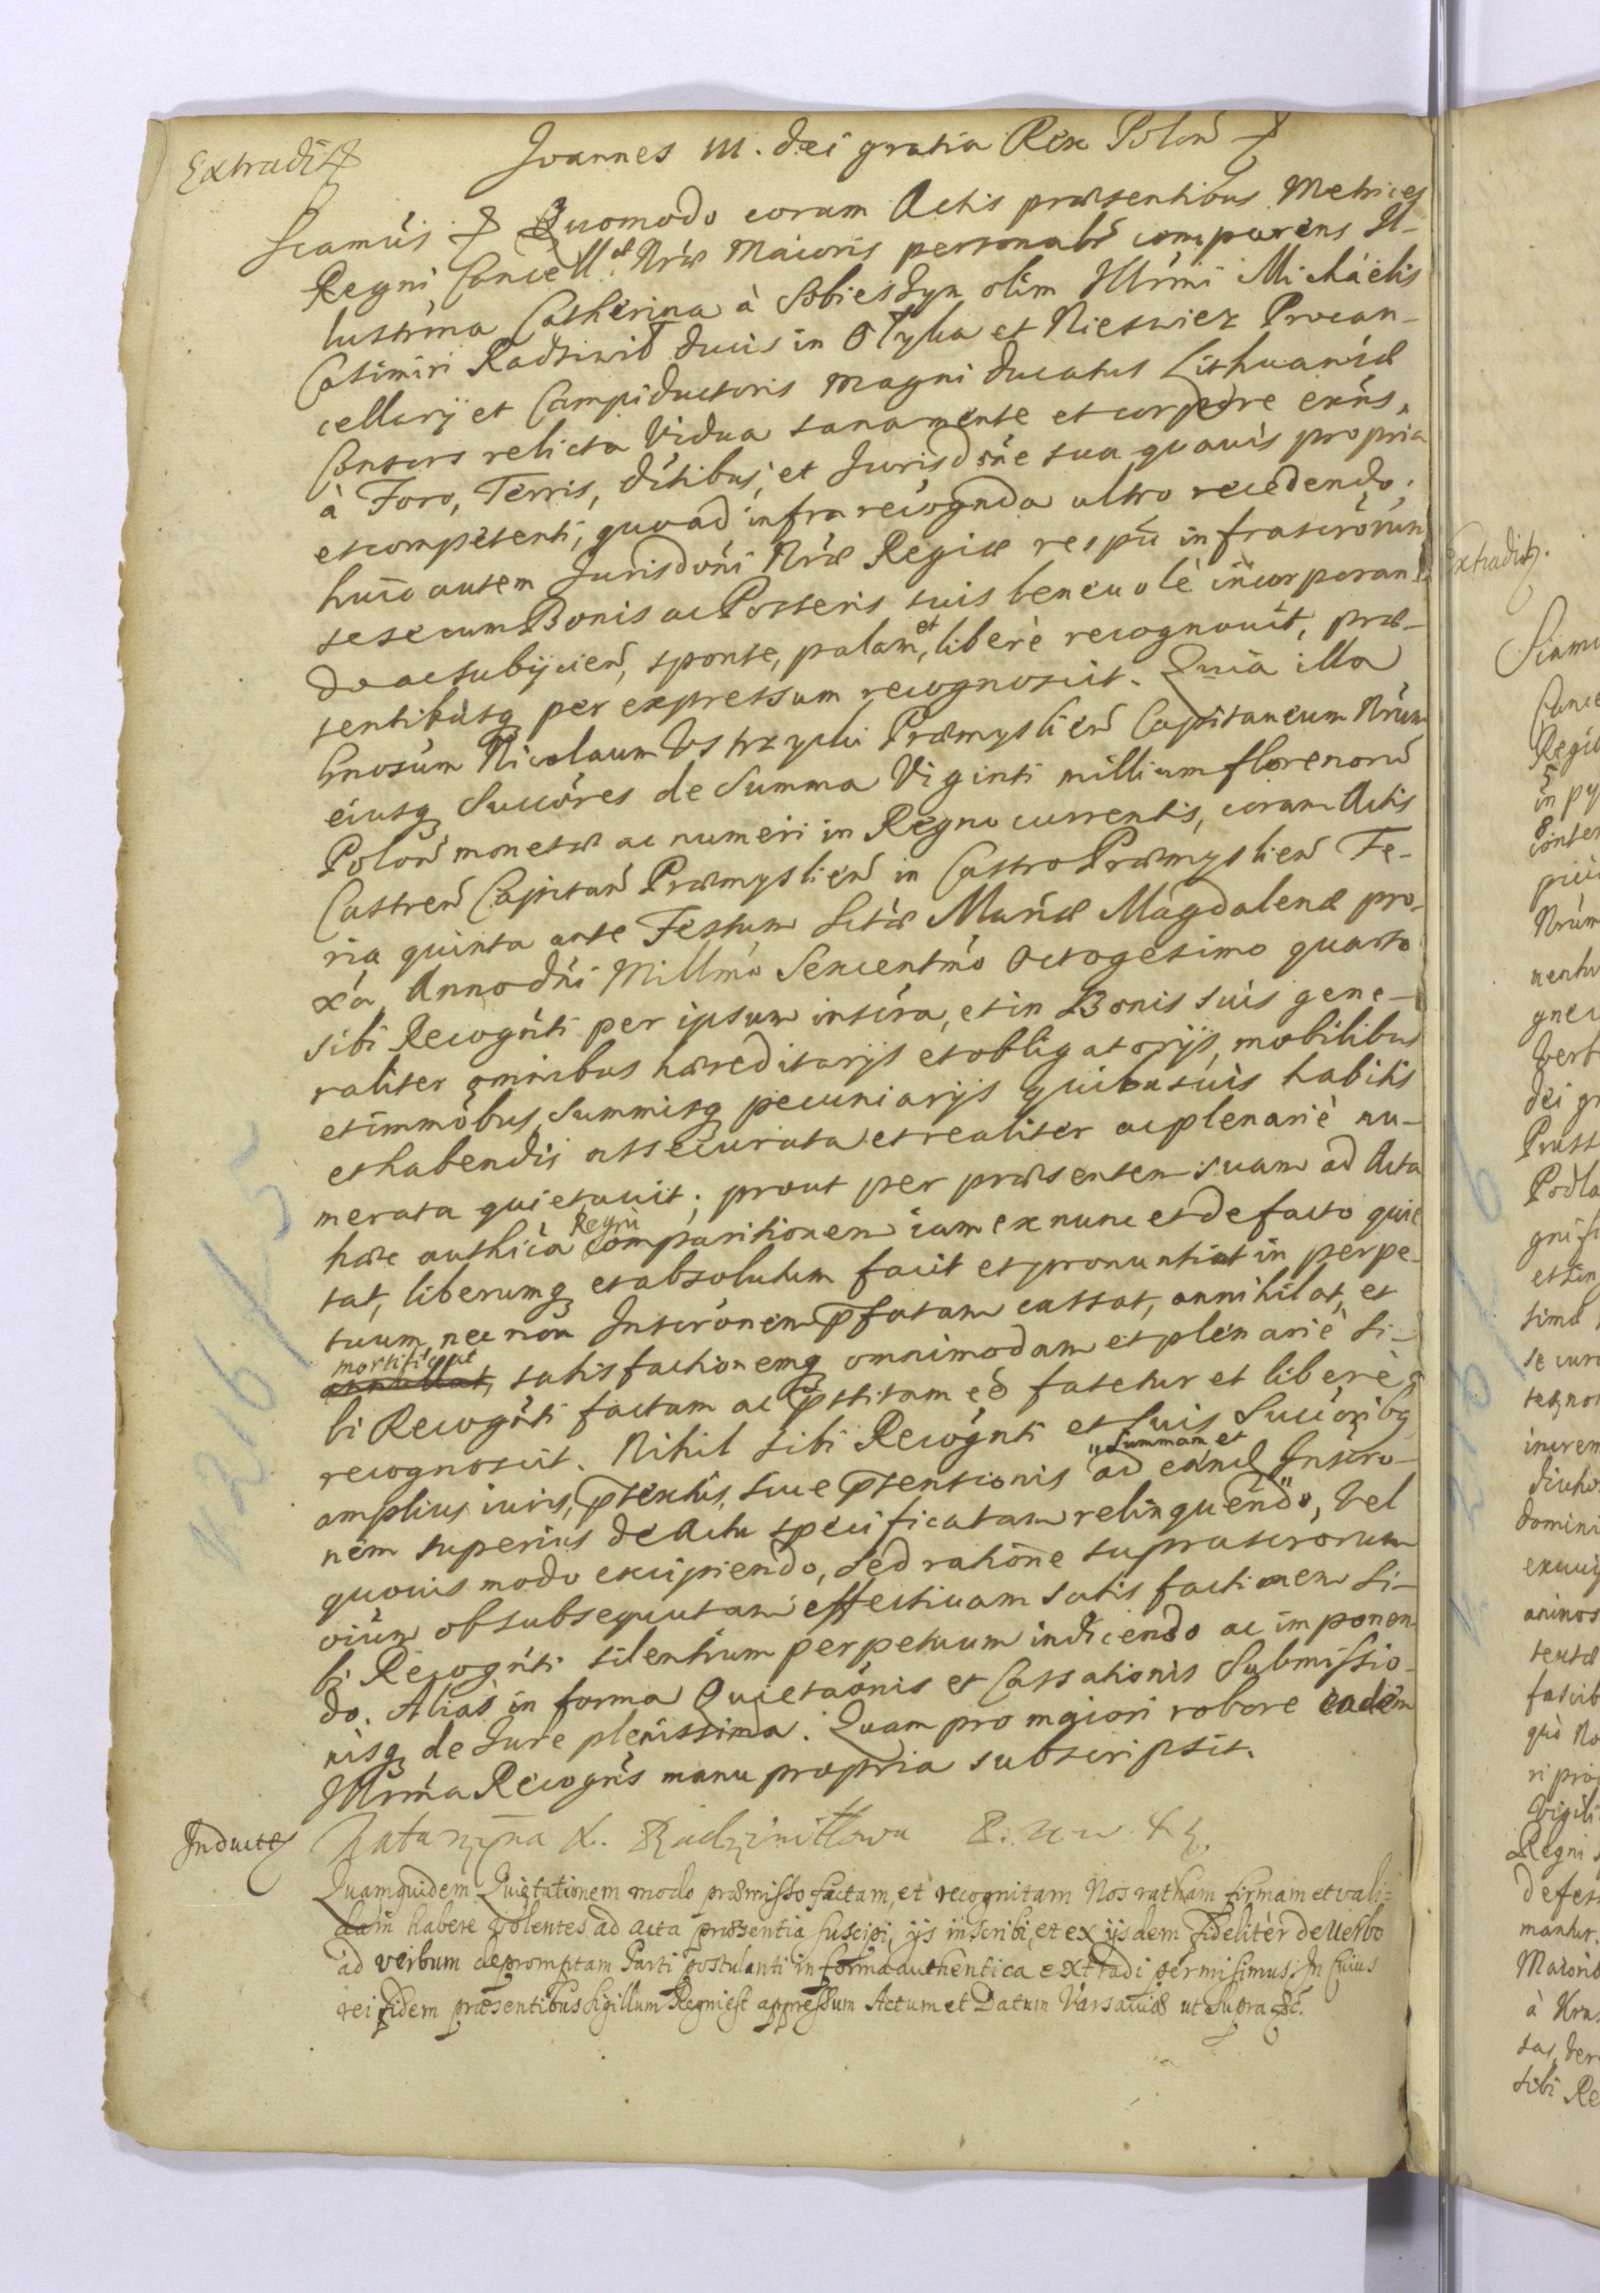 Extradit
Joannes III. Dei gratia Rex Polon
Sciamus Quomodo coram Actis præsentibus Metrices
Regni, Cancell. Nræ Maioris personalr comparens Il-
lustrma Catherina à Sobieszyn olim Illrmi Michaëlis
Casimiri Radziwił Ducis in Ołyka et Nieswiez Procan-
cellarij et Campiductoris Magni Ducatus Lithuaniæ
Consors relicta Vidua sana mente et corpore exns,
à Foro, Terris, Ditibus, et Jurisdone sua quavis propria
et competenti, quoad infra recognda ultro recedendo.
huic autem Jurisdoni Nræ Regiæ respu infrascrorum
sese cum Bonis ac Posteris suis beneuolè incorporan-
do ac subijcien, sponte, palam, et libere recognouit, præ-
sentibusq per expressum recognoscit. Quia illa
Gnosum Nicolaum Ustrzycki Præmyslien Capitaneum Nrum
eiusq Succores de Summa Viginti millium florenoru
Polon monetæ ac numeri in Regno currentis, coram Actis
Castren Capitan Præmyslien in Castro Præmyslien Fe-
ria quinta ante Festum Sctæ Mariæ Magdalenæ pro-
xa Anno Dni Millmo Sexcentmo Octogesimo quarto
sibi Recognti per ipsum inscra, et in Bonis suis gene-
raliter omnibus hæreditarijs et obligatorijs, mobilibus
et immobus, Summisq pecuniarijs quibusuis habitis
et habendis assecurata et realiter ac plenariè nu-
merata quietauit; prout per præsentem suam ad Acta
hæc authica Regni comparitionem iam ex nunc et de facto quie
tat, liberumq et absolutum facit et pronuntiat in perpe-
tuum, nec non Inscronem pfatam cassat, annihilat, et
mortificat, satisfactionemq omnimodam et plenariè si-
bi Recognti factam ac pstitam eo fatetur et liberè
recognoscit. Nihil sibi Recognti et suis Succoribq
amplius iuris, ptextus, siue ptensionis ad Summam et eand Inscro-
nem superius de Actu specificatam relinquendo, vel
quouis modo excipiendo, sed ratione suprascrorum
oium ob subsequutam effectiuam satisfactionem si-
bi Recognti silentium perpetuum indicendo ac imponen-
do. Alias in forma Quietaonis et Cassationis Submissio-
nisq de Jure plenissima. Quam pro maiori robore eadem
Illrma Recogns manu propria subscripsit.
Inducta
Katarzyna X. Radziwiłłowa
Quamquidem Quietationem modo præmisso factam, et recognitam Nos ratham firmam et vali-
dam habere volentes ad acta præsentia suscipi, ijs inscribi, et ex ijsdem fideliter de Uerbo
ad verbum depromptam Parti postulanti in forma authentica extradi permisimus. In Cuius
rei fidem præsentibus Sigillum Regni est appressum Actum et Datum Varsauiæ ut Supra &c.